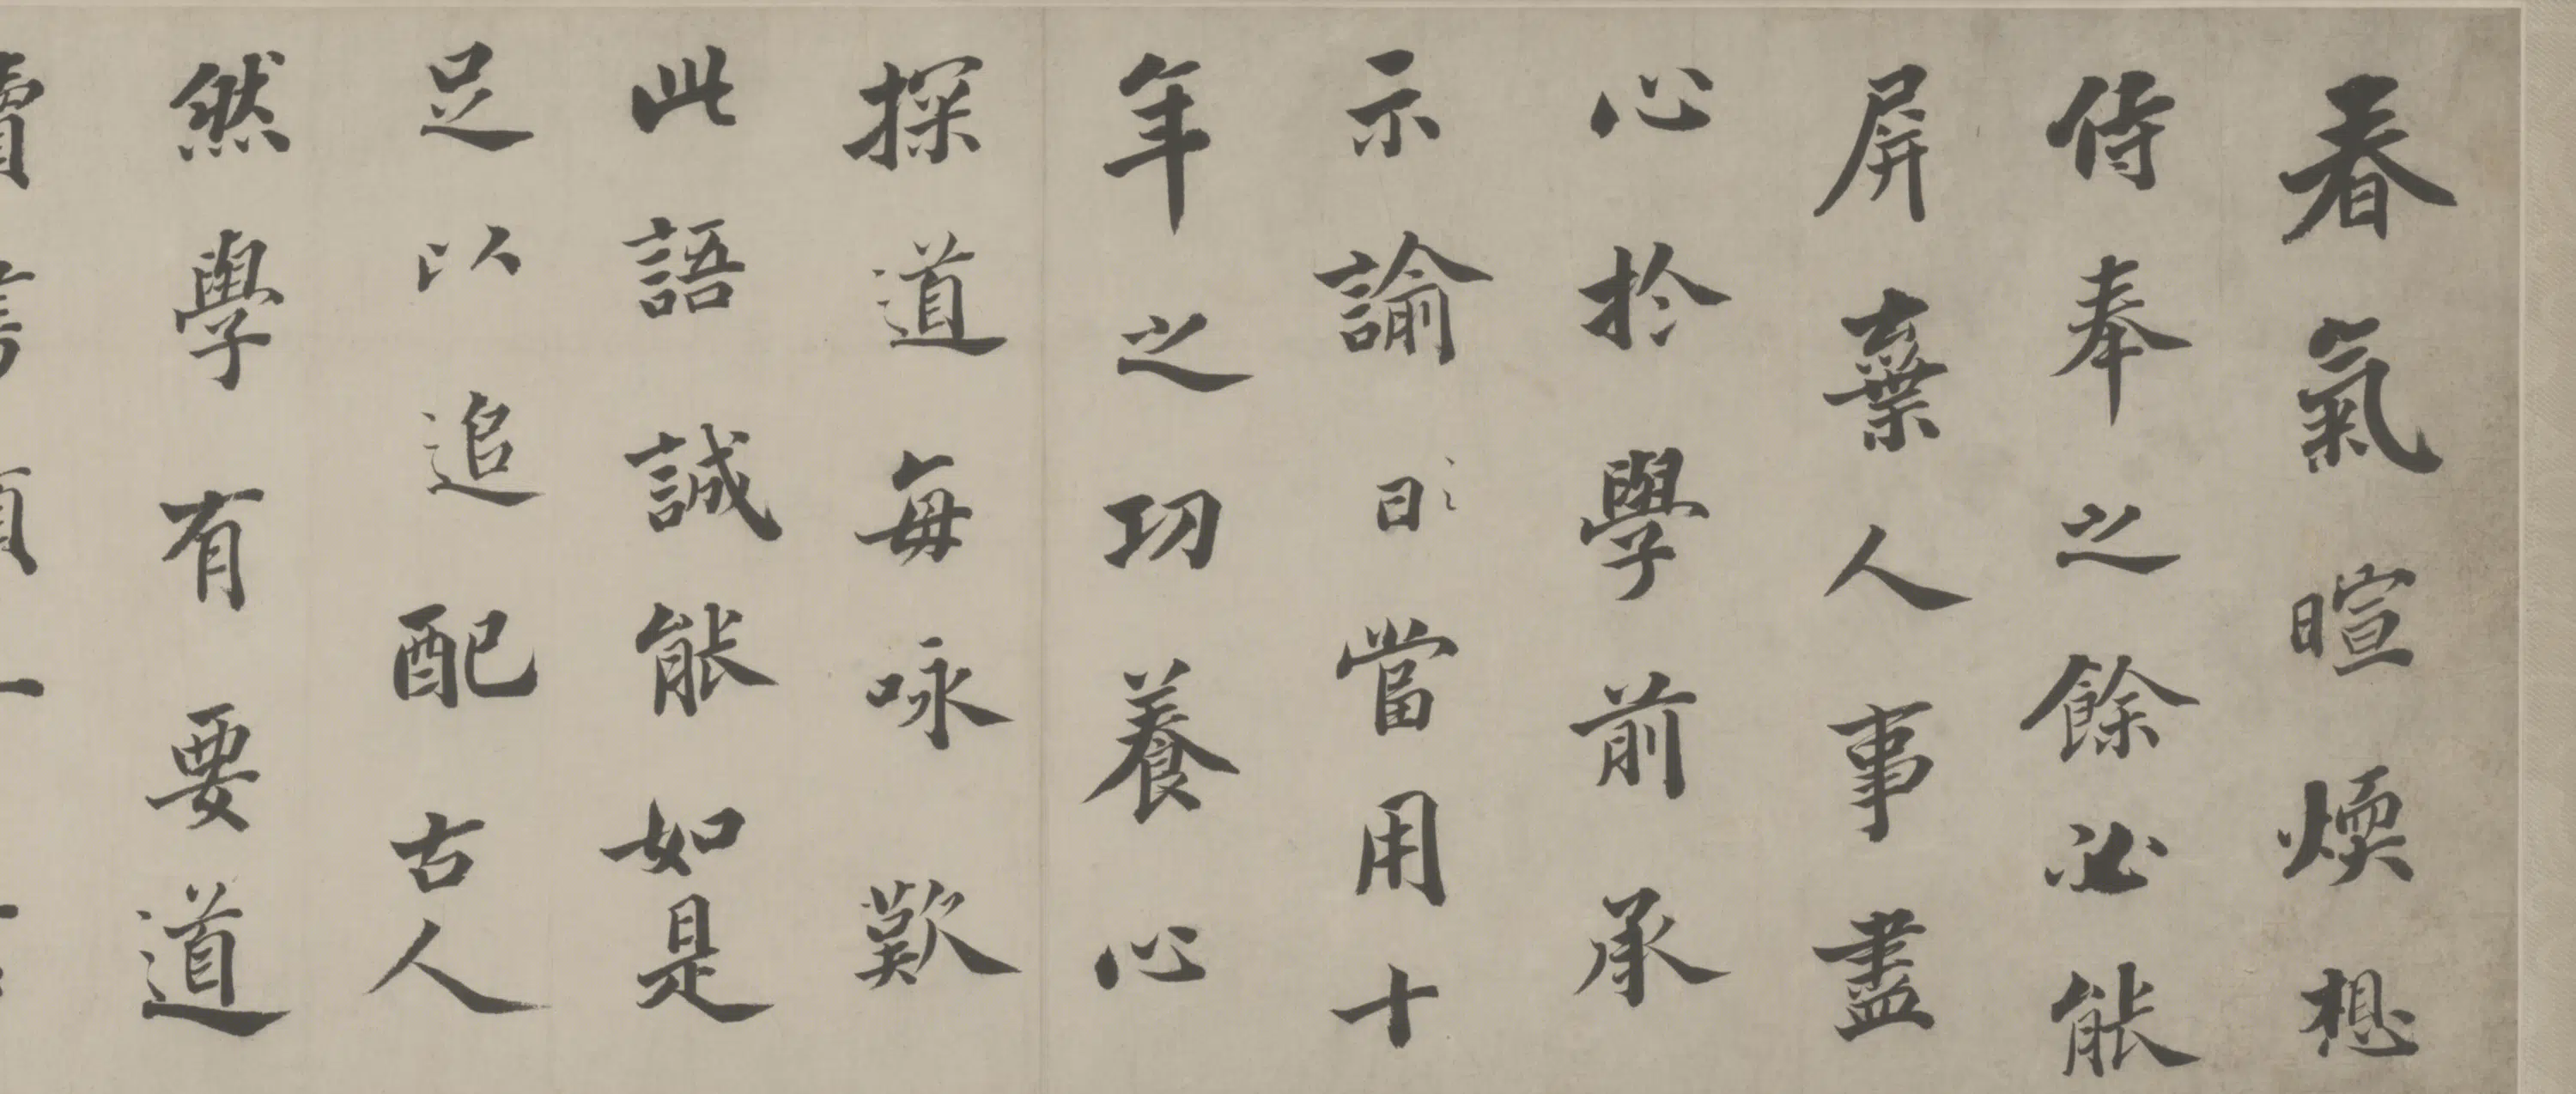 春氣暄煗想
侍奉之餘必能
屏棄人事盡
心於學前承
示諭日當用十
年之功養心
探道每咏歎
此語誠能如是
足以追配古人
然學有要道